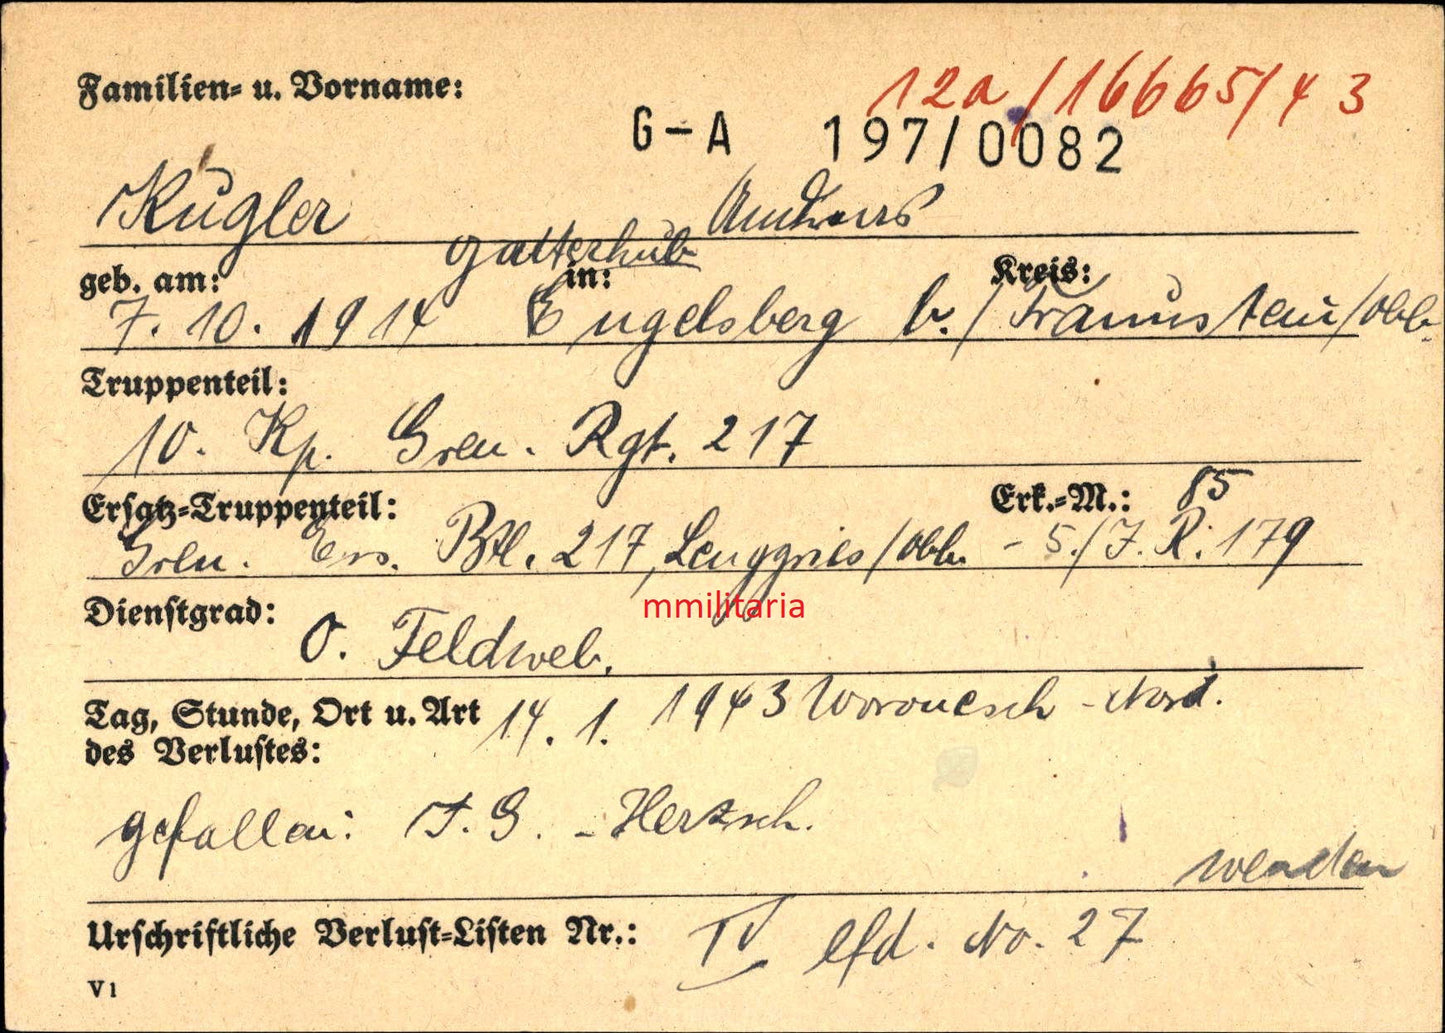 Familien- u. Vorname:
12a/16665/43
G-A 197/0082
Kugler Andreas
Gatterhub
geb. am: in: Kreis:
7. 10. 1914 Engelsberg b./Traunstein/Obb.
Truppenteil:
10. Kp. Gren. Rgt. 217
Ersatz-Truppenteil: Erk.-M.: 85
Gren. Ers. Btl. 217, Lenggries/Obb. - 5./J.R. 179
mmilitaria
Dienstgrad: O. Feldweb.
Tag, Stunde, Ort u. Art 14. 1. 1943 Woronesch - Nord.
des Verlustes:
gefallen: J. G. - Herzsch.
wenden
Urschriftliche Verlust-Listen Nr.: IV lfd. No. 27
V1